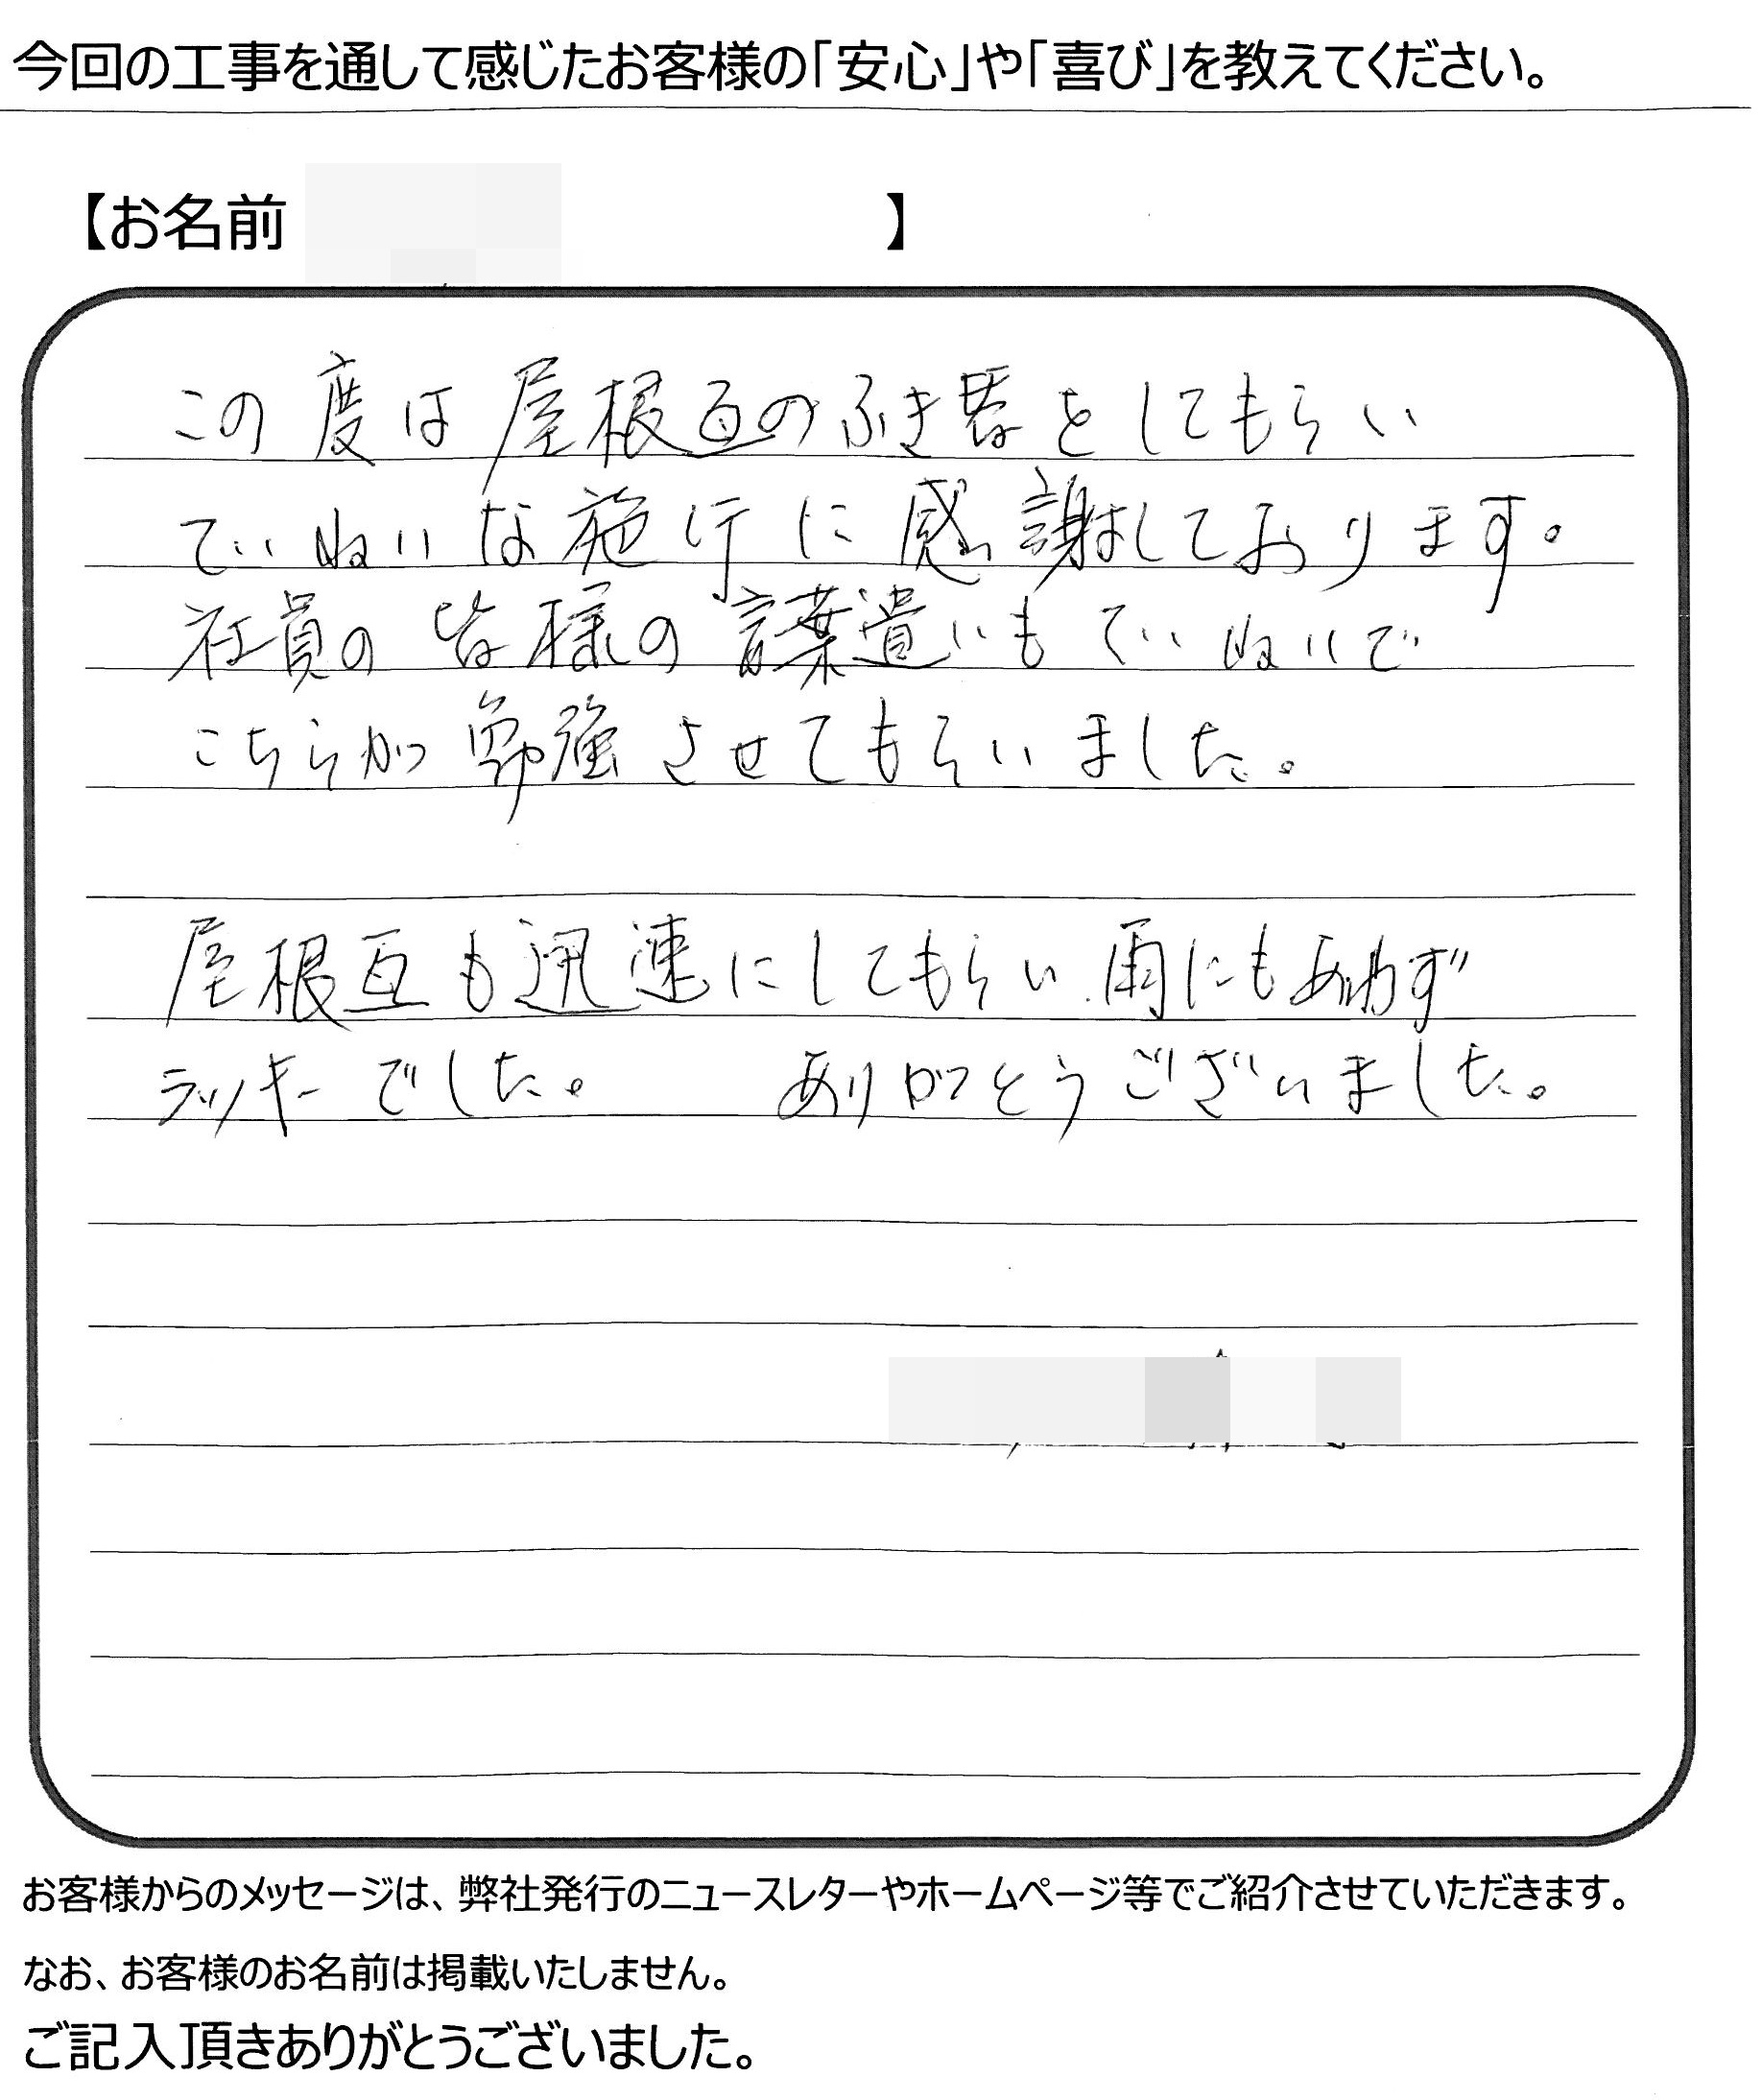 今回の工事を通して感じたお客様の「安心」や「喜び」を教えてください。
【お名前 】
この度は屋根瓦のふき替をしてもらい
ていねいな施行に感謝しております。
社員の皆様の言葉遣いもていねいで
こちらが勉強させてもらいました。
屋根瓦も迅速にしてもらい雨にもあわず
ラッキーでした。 ありがとうございました。
お客様からのメッセージは、弊社発行のニュースレターやホームページ等でご紹介させていただきます。
なお、お客様のお名前は掲載いたしません。
ご記入頂きありがとうございました。